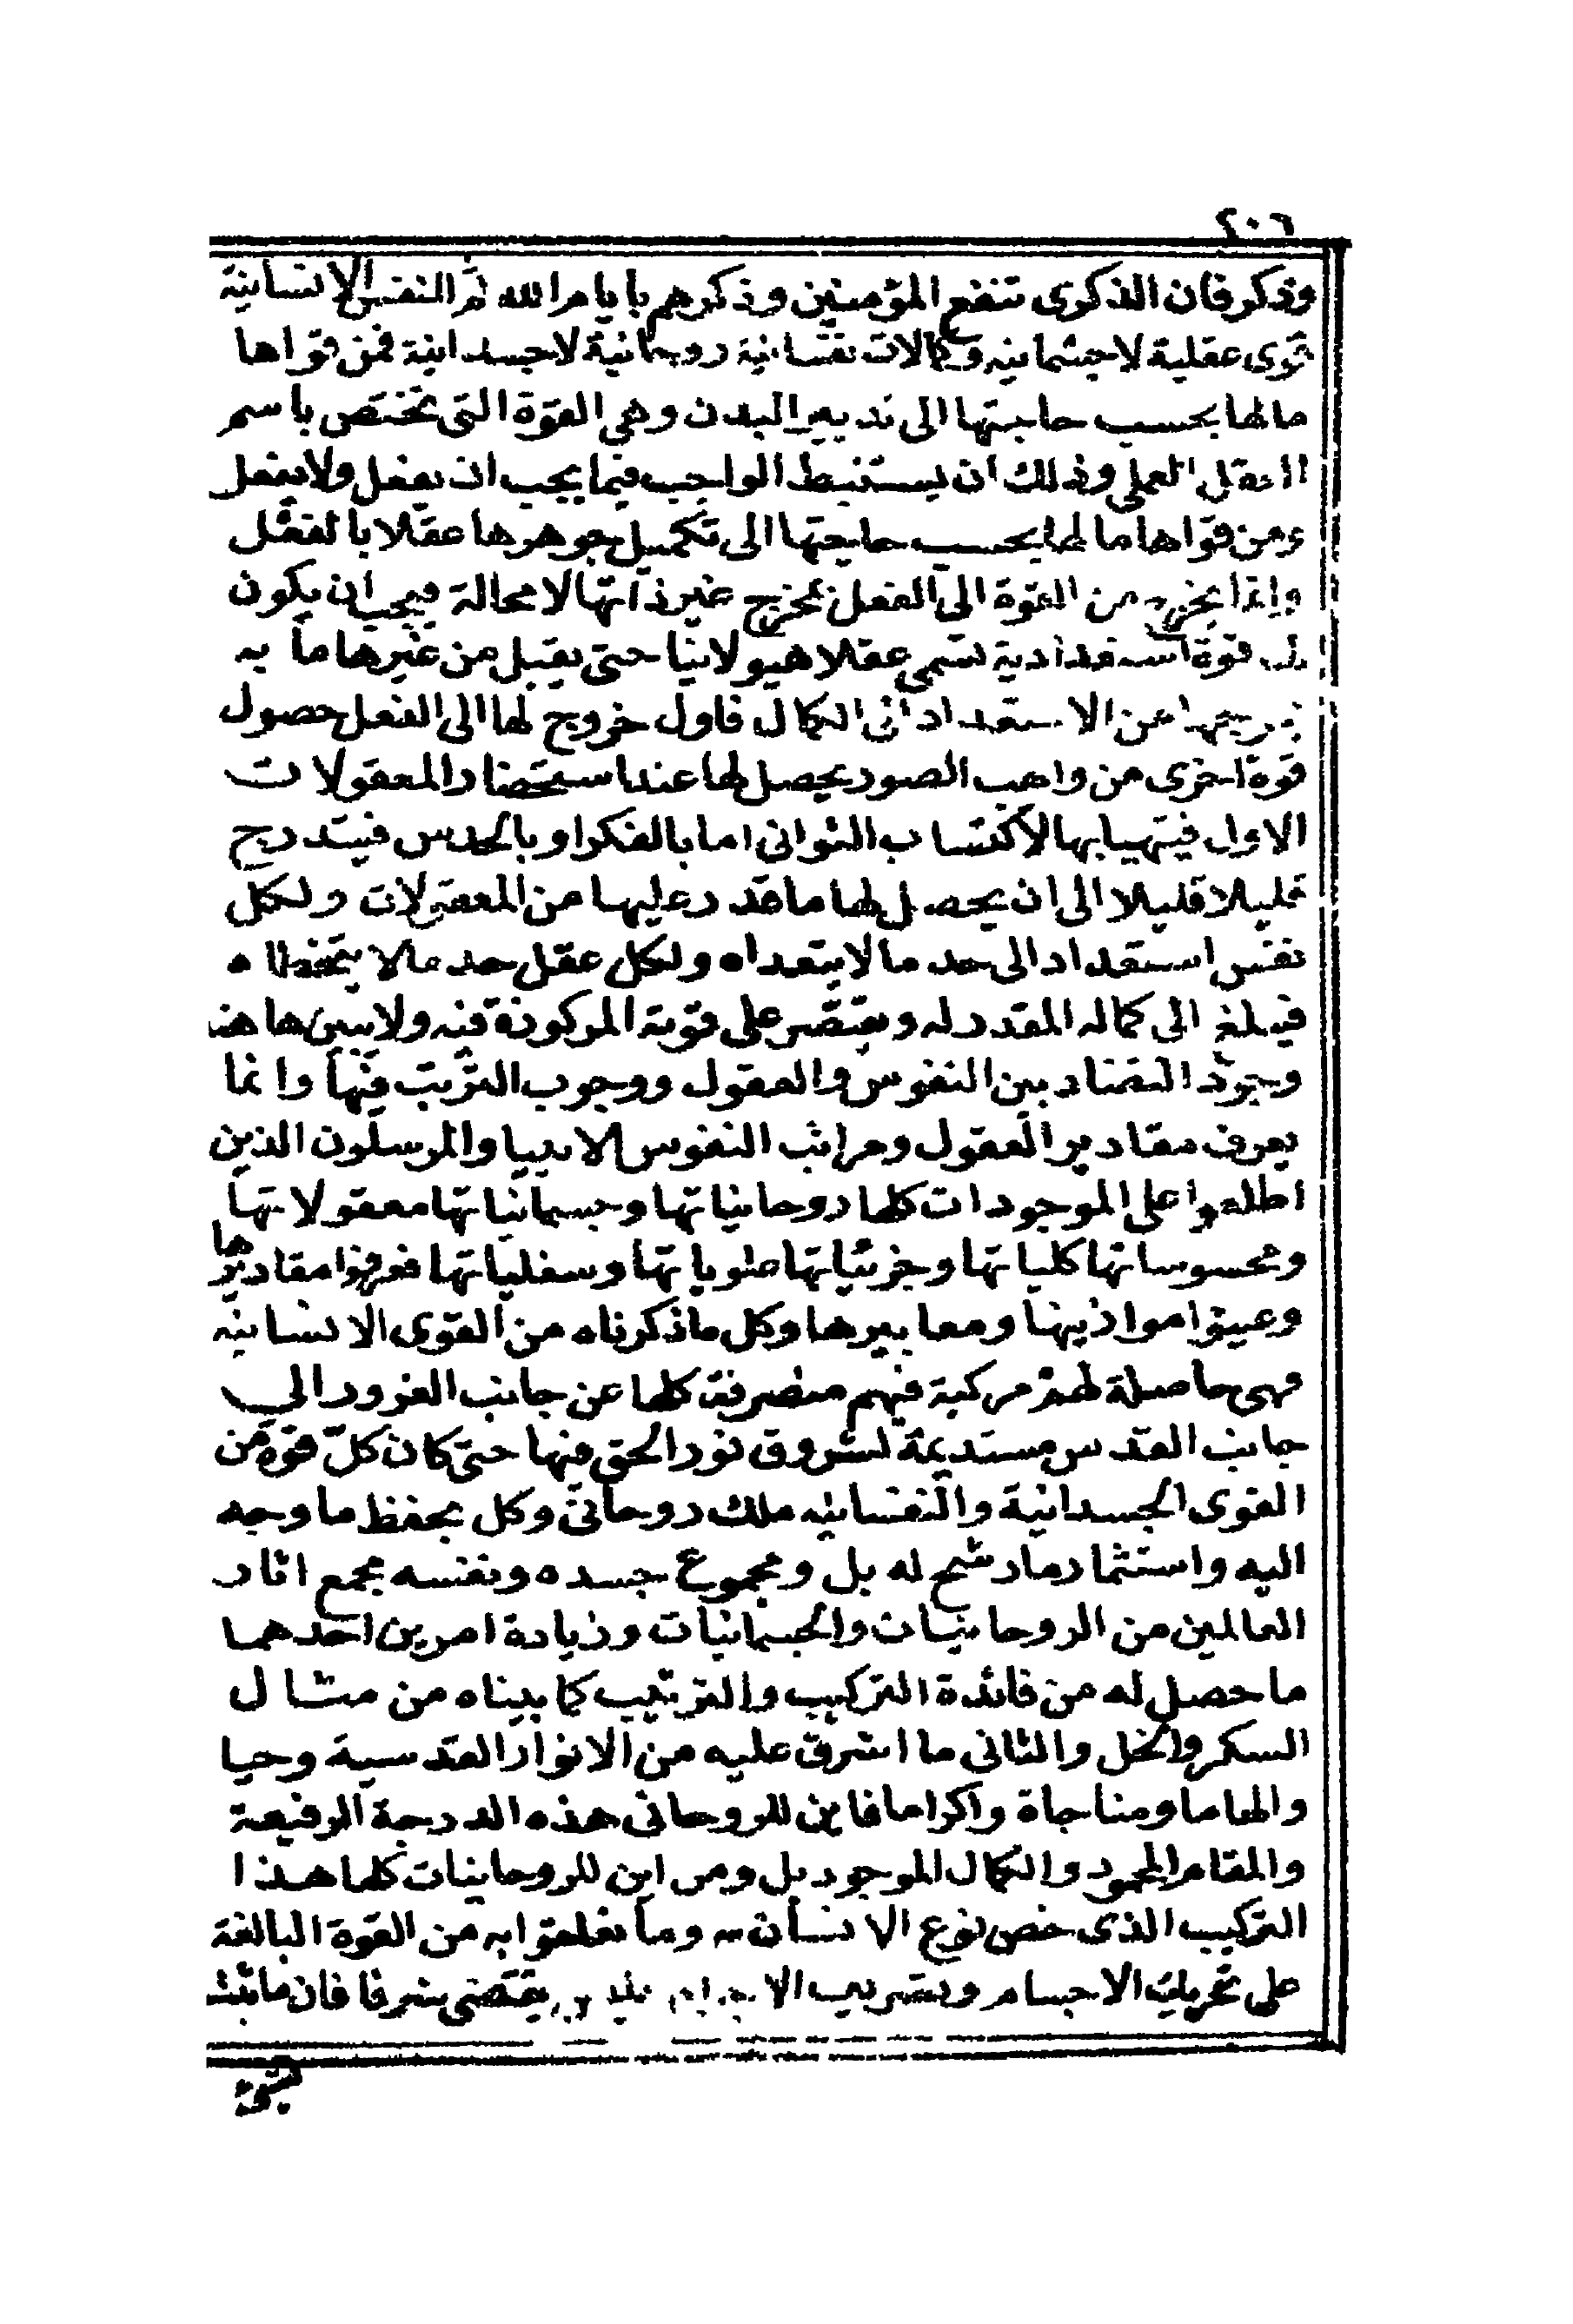 ٢٠٦
وذكر فان الذكرى تنفع المؤمنين وذكرهم بايام الله ثم النفس الانسانية
قوى عقلية لا جسمانيه وكمالات نفسانية روحانية لا جسدانية فمن قواها
ما لها بحسب حاجتها الى تدبير البدن وهي القوة التي تختص باسم
العقل العملي وذلك ان يستنبط الواجب فيما يجب ان يفعل ولا يفعل
ومن قواها ما لها بحسب حاجتها الى تكميل جوهرها عقلا بالفعل
وانما يخرج من القوة الى الفعل بمخرج غير ذاتها لا محالة فيجب ان يكون
لها قوة استعدادية تسمى عقلا هيولانيا حتى يقبل من غيرها ما به
يخرجها عن الاستعداد الى الكمال فاول خروج لها الى الفعل حصول
قوة اخرى من واهب الصور يحصل لها عند استحضار المعقولات
الاول فيتهيا بها لاكتساب الثواني اما بالفكر او بالحدس فيتدرج
قليلا قليلا الى ان يحصل لها ما قدر عليها من المعقولات ولكل
نفس استعداد الى حد ما لا يتعداه ولكل عقل حد ما لا يتخطاه
فيبلغ الى كماله المقدر له ويقتصر على قوته المركوزة فيه ولا يبين هاهنا
وجود التضاد بين النفوس والعقول ووجوب الترتب فيها وانما
يعرف مقادير العقول ومراتب النفوس الانبيا والمرسلون الذين
اطلعوا على الموجودات كلها روحانياتها وجسمانياتها معقولاتها
ومحسوساتها كلياتها وجزئياتها علوياتها وسفلياتها فعرفوا مقاديرها
وعينوا موازينها ومعاييرها وكل ما ذكرناه من القوى الانسانيه
فهي حاصلة لهم مركبة فيهم منصرفة كلها عن جانب الغرور الي
جانب القدس مستديمة لشروق نور الحق فيها حتى كان كل قوة من
القوى الجسدانية والنفسانيه ملك روحاني وكل بحفظ ما وجه
اليه واستثمار ما رشح له بل ومجموع جسده ونفسه مجمع اثار
العالمين من الروحانيات والجسمانيات وزيادة امرين احدهما
ما حصل له من فائدة التركيب والترتيب كما بيناه من مثال
السكر والخل والثاني ما اشرق عليه من الانوار القدسية وحيا
والهاما ومناجاة واكراما فاين للروحاني هذه الدرجة الرفيعة
والمقام المحمود والكمال الموجود بل ومن اين للروحانيات كلها هذا
التركيب الذي خص نوع الانسان به وما تعلقوا به من القوة البالغة
على تحريك الاجسام وتصريف الاجرام فليس يقتضي شرفا فان ما ثبت